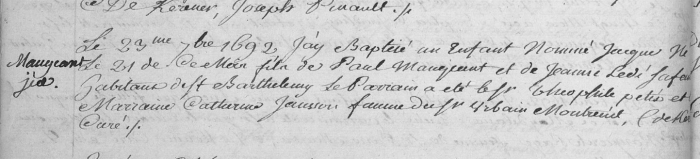 De Kerener, Joseph Pinault ./.
Mangeant
jda.
Le 23me 7bre 1692 J'ay Baptisé un Enfant Nommé Jacque Né
Le 21 de Ce Mois fils de Paul Mangeant et de Jeanne Ledé sa fe
habitans de St Barthelemy Le Parrain a été le Sr theophile petit et
Marraine Catherine Janson famme du Sr Urbain Montreuil,
Curé ./.